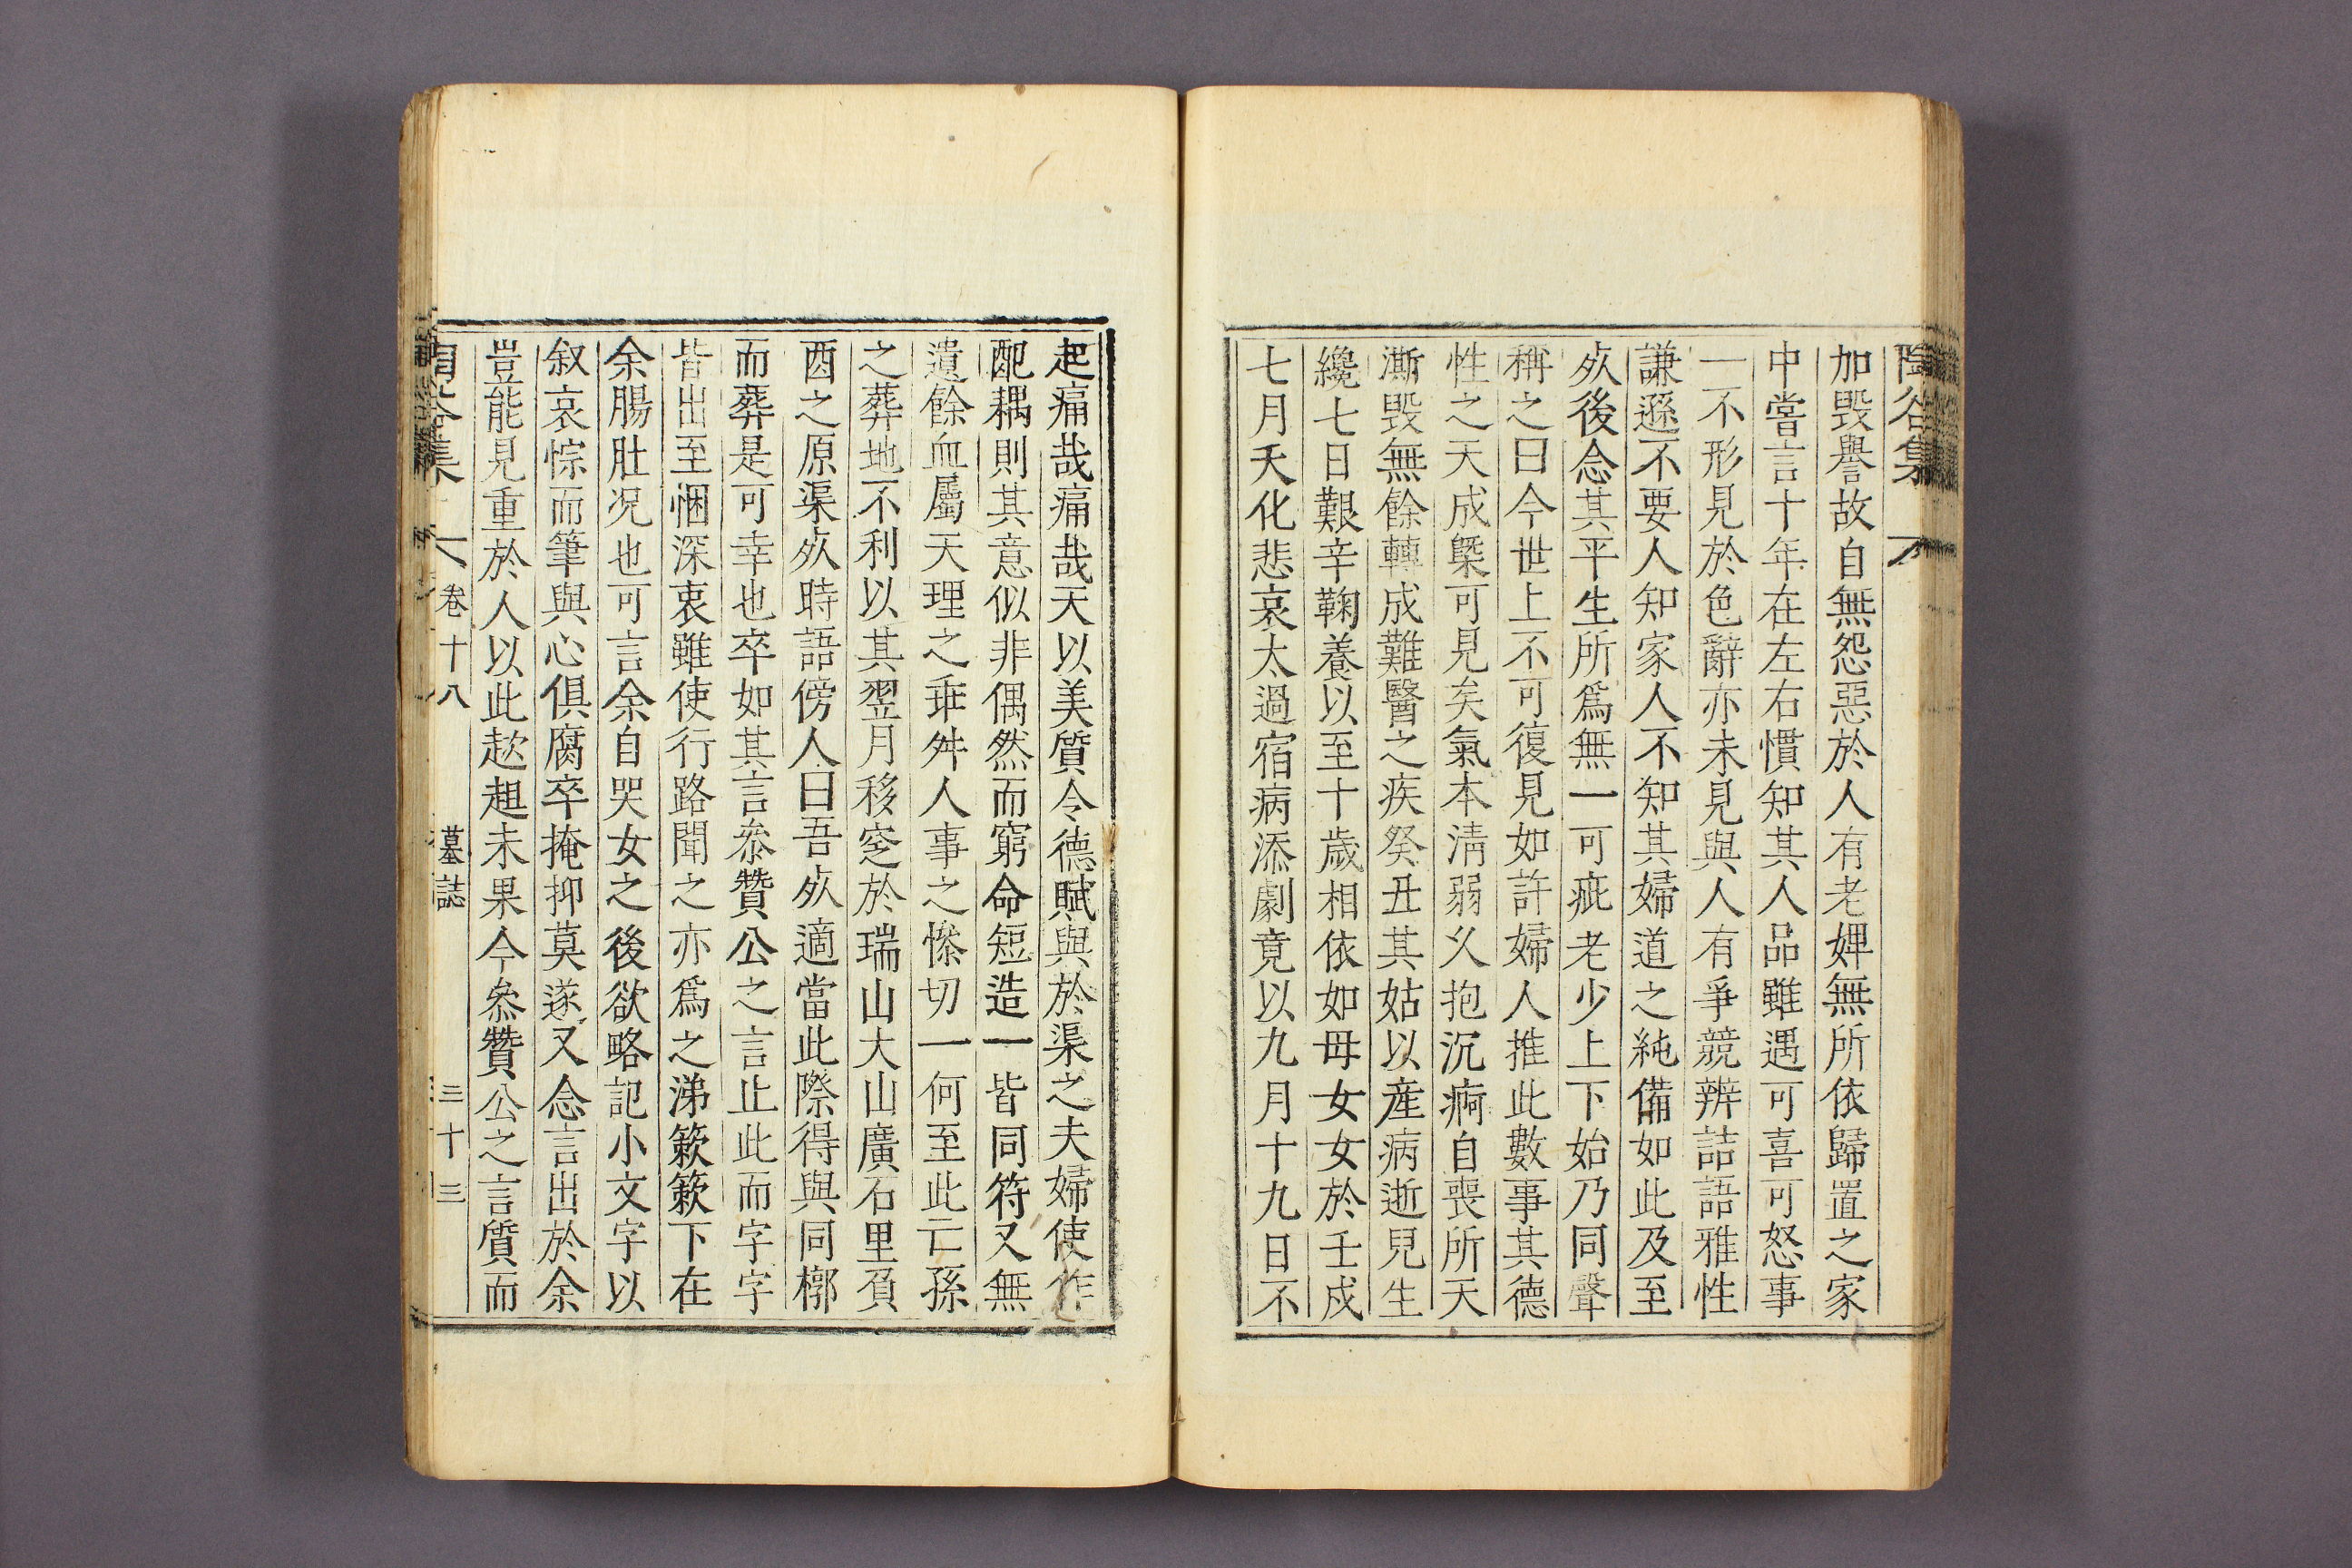 陶谷集
加毁譽故自無怨惡於人有老婢無所依歸置之家
中嘗言十年在左右慣知其人品雖遇可喜可怒事
一不形見於色辭亦未見與人有爭競辨詰語雅性
謙遜不要人知家人不知其婦道之純備如此及至
死後念其平生所爲無一可疵老少上下始乃同聲
稱之曰今世上不可復見如許婦人推此數事其德
性之天成槩可見矣氣本淸弱久抱沉痾自喪所天
澌毁無餘轉成難醫之疾癸丑其姑以産病逝兒生
纔七日艱辛鞠養以至十歲相依如母女女於壬戌
七月夭化悲哀太過宿病添劇竟以九月十九日不
起痛哉痛哉天以美質令德賦與於渠之夫婦使作
配耦則其意似非偶然而窮命短造一皆同符又無
遺餘血屬天理之乖舛人事之慘切一何至此亡孫
之葬地不利以其翌月移窆於瑞山大山廣石里負
酉之原渠死時語傍人曰吾死適當此際得與同槨
而葬是可幸也卒如其言叅贊公之言止此而字字
皆出至悃深衷雖使行路聞之亦爲之涕簌簌下在
余腸肚况也可言余自哭女之後欲略記小文字以
叙哀悰而筆與心俱腐卒掩抑莫遂又念言出於余
豈能見重於人以此趑趄未果今叅贊公之言質而
陶谷集 卷十八 墓誌 三十三